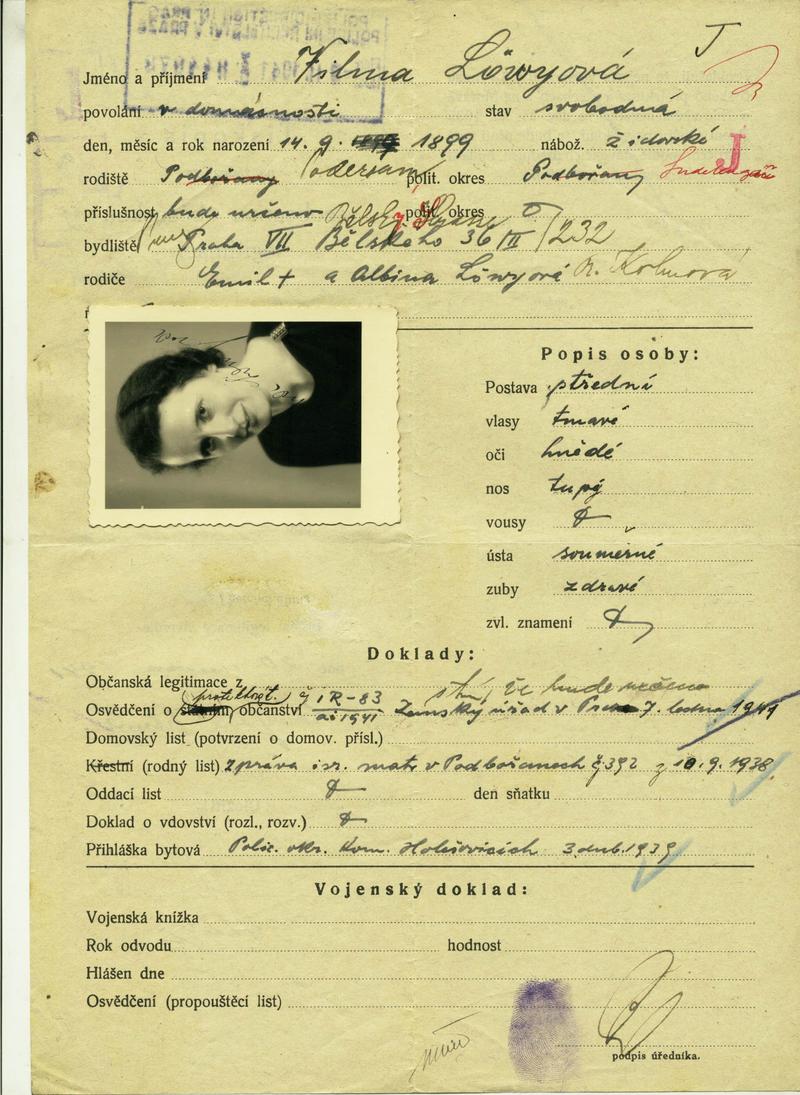 J
Jméno a příjmení Vilma Löwyová
povolání v domácnosti stav svobodná
den, měsíc a rok narození 14. 9. 1899 nábož. židovské
J
rodiště Podbořany Podersam polit. okres Podbořany Sudetengau
příslušnost bude určeno polit. okres
bydliště Praha VII Bělského 36/II /232
rodiče Emil + a Albina Löwyová r. Kohnová
Popis osoby:
Postava střední
vlasy tmavé
oči hnědé
nos tupý
vousy
ústa souměrné
zuby zdravé
zvl. znamení
Doklady:
Občanská legitimace z
protektorát.
Osvědčení o státním občanství č IR-83 ai 1941 Zemský úřad v Praze 7. ledna 1941
Domovský list (potvrzení o domov. přísl.)
Křestní (rodný list) zpráva isr. matr. v Podbořanech č 392 z 10. 9. 1938
Oddací list den sňatku
Doklad o vdovství (rozl., rozv.)
Přihláška bytová Polic. okr. kom. Holešovicích 3. dub. 1939
Vojenský doklad:
Vojenská knížka
Rok odvodu hodnost
Hlášen dne
Osvědčení (propouštěcí list)
podpis úředníka.